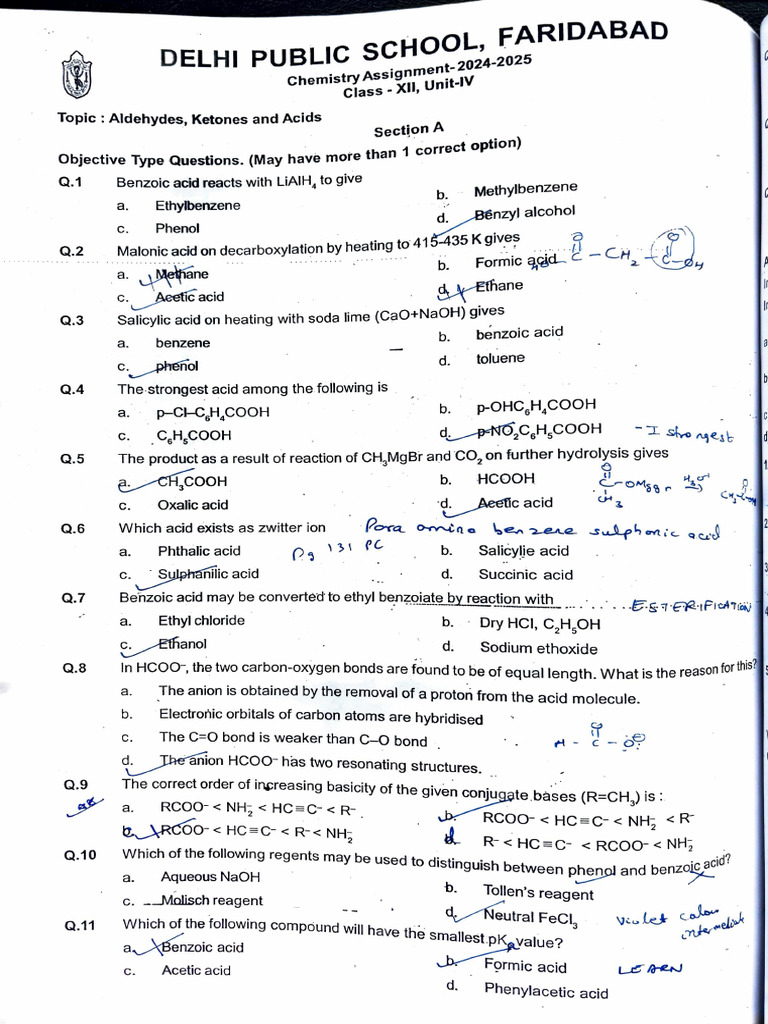 DELHI PUBLIC SCHOOL, FARIDABAD
Chemistry Assignment-2024-2025
Class - XII, Unit-IV
Topic : Aldehydes, Ketones and Acids
Section A
Objective Type Questions. (May have more than 1 correct option)
Q.1 Benzoic acid reacts with LiAlH₄ to give
a. Ethylbenzene b. Methylbenzene
c. Phenol d. Benzyl alcohol
Q.2 Malonic acid on decarboxylation by heating to 415-435 K gives
a. Methane b. Formic acid HO-C-CH₂-C-OH
c. Acetic acid d. Ethane
Q.3 Salicylic acid on heating with soda lime (CaO+NaOH) gives
a. benzene b. benzoic acid
c. phenol d. toluene
Q.4 The strongest acid among the following is
a. p–Cl–C₆H₄COOH b. p-OHC₆H₄COOH
c. C₆H₅COOH d. p-NO₂C₆H₅COOH -I strongest
Q.5 The product as a result of reaction of CH₃MgBr and CO₂ on further hydrolysis gives
a. CH₃COOH b. HCOOH
c. Oxalic acid d. Acetic acid
Q.6 Which acid exists as zwitter ion Para amino benzene sulphonic acid
a. Phthalic acid Pg 131 PC b. Salicylie acid
c. Sulphanilic acid d. Succinic acid
Q.7 Benzoic acid may be converted to ethyl benzoiate by reaction with ESTERIFICATION
a. Ethyl chloride b. Dry HCl, C₂H₅OH
c. Ethanol d. Sodium ethoxide
Q.8 In HCOO⁻, the two carbon-oxygen bonds are found to be of equal length. What is the reason for this?
a. The anion is obtained by the removal of a proton from the acid molecule.
b. Electronic orbitals of carbon atoms are hybridised
c. The C=O bond is weaker than C–O bond H - C - O
d. The anion HCOO⁻ has two resonating structures.
Q.9 The correct order of increasing basicity of the given conjugate bases (R=CH₃) is :
a. RCOO⁻ < NH₂⁻ < HC≡C⁻ < R⁻ b. RCOO⁻ < HC≡C⁻ < NH₂⁻ < R⁻
c. RCOO⁻ < HC≡C⁻ < R⁻ < NH₂⁻ d R⁻ < HC≡C⁻ < RCOO⁻ < NH₂⁻
Q.10 Which of the following regents may be used to distinguish between phenol and benzoic acid?
a. Aqueous NaOH b. Tollen's reagent
c. Molisch reagent d. Neutral FeCl₃ Violet colour
intermediate
Q.11 Which of the following compound will have the smallest pKa value?
a. Benzoic acid b. Formic acid LEARN
c. Acetic acid d. Phenylacetic acid